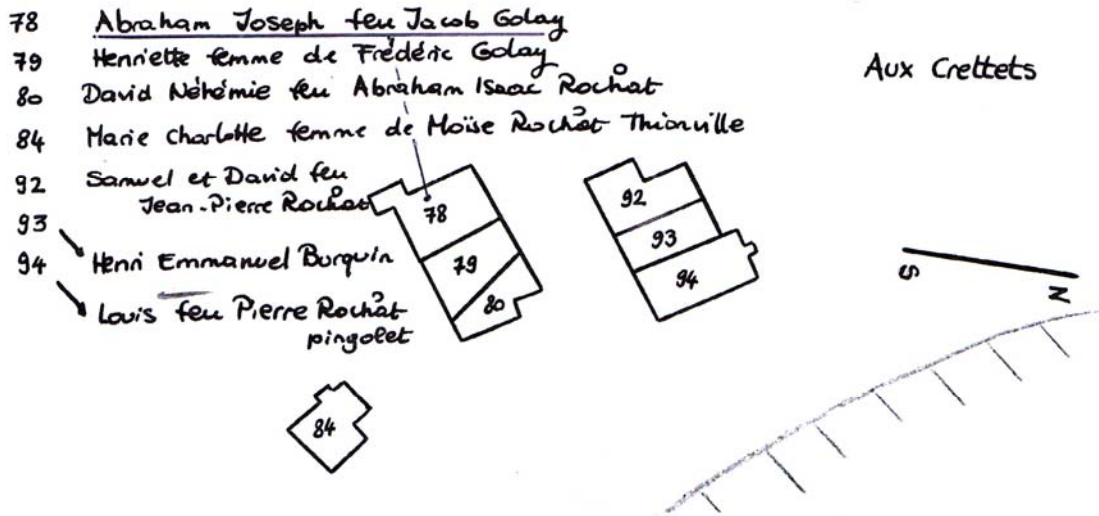 78 Abraham Joseph feu Jacob Golay
79 Henriette femme de Frédéric Golay
80 David Néhémie feu Abraham Isaac Rochat
84 Marie Charlotte femme de Moïse Rochat Thionville
92 Samuel et David feu
Jean-Pierre Rochat
93 Henri Emmanuel Burquin
94 Louis feu Pierre Rochat
pingolet
Aux Crettets
78
79
80
92
93
94
84
S
N